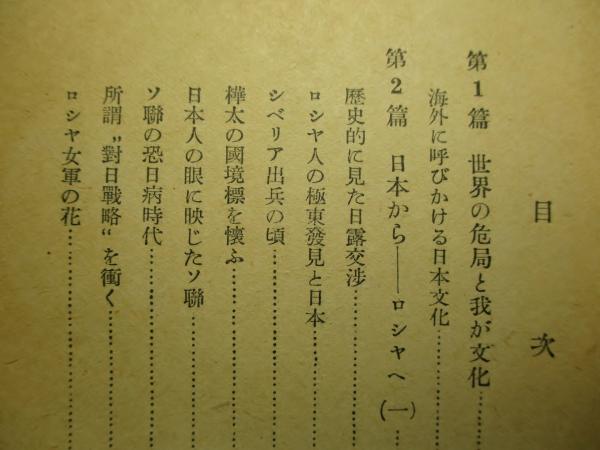 目次
第1篇 世界の危局と我が文化……………
海外に呼びかける日本文化……………
第2篇 日本から——ロシヤへ(一)……
歴史的に見た日露交渉……………
ロシヤ人の極東發見と日本……………
シベリア出兵の頃……………
樺太の國境標を懐ふ……………
日本人の眼に映じたソ聯……………
ソ聯の恐日病時代……………
所謂〝對日戰略〟を衝く……………
ロシヤ女軍の花……………